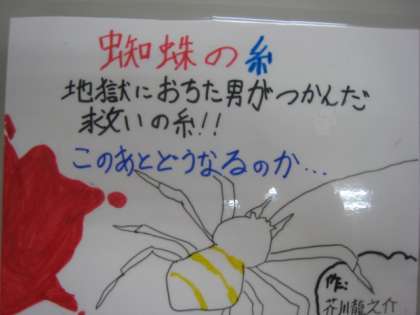 蜘蛛の糸
地獄におちた男がつかんだ
救いの糸!!
このあとどうなるのか…
作:
芥川龍之介